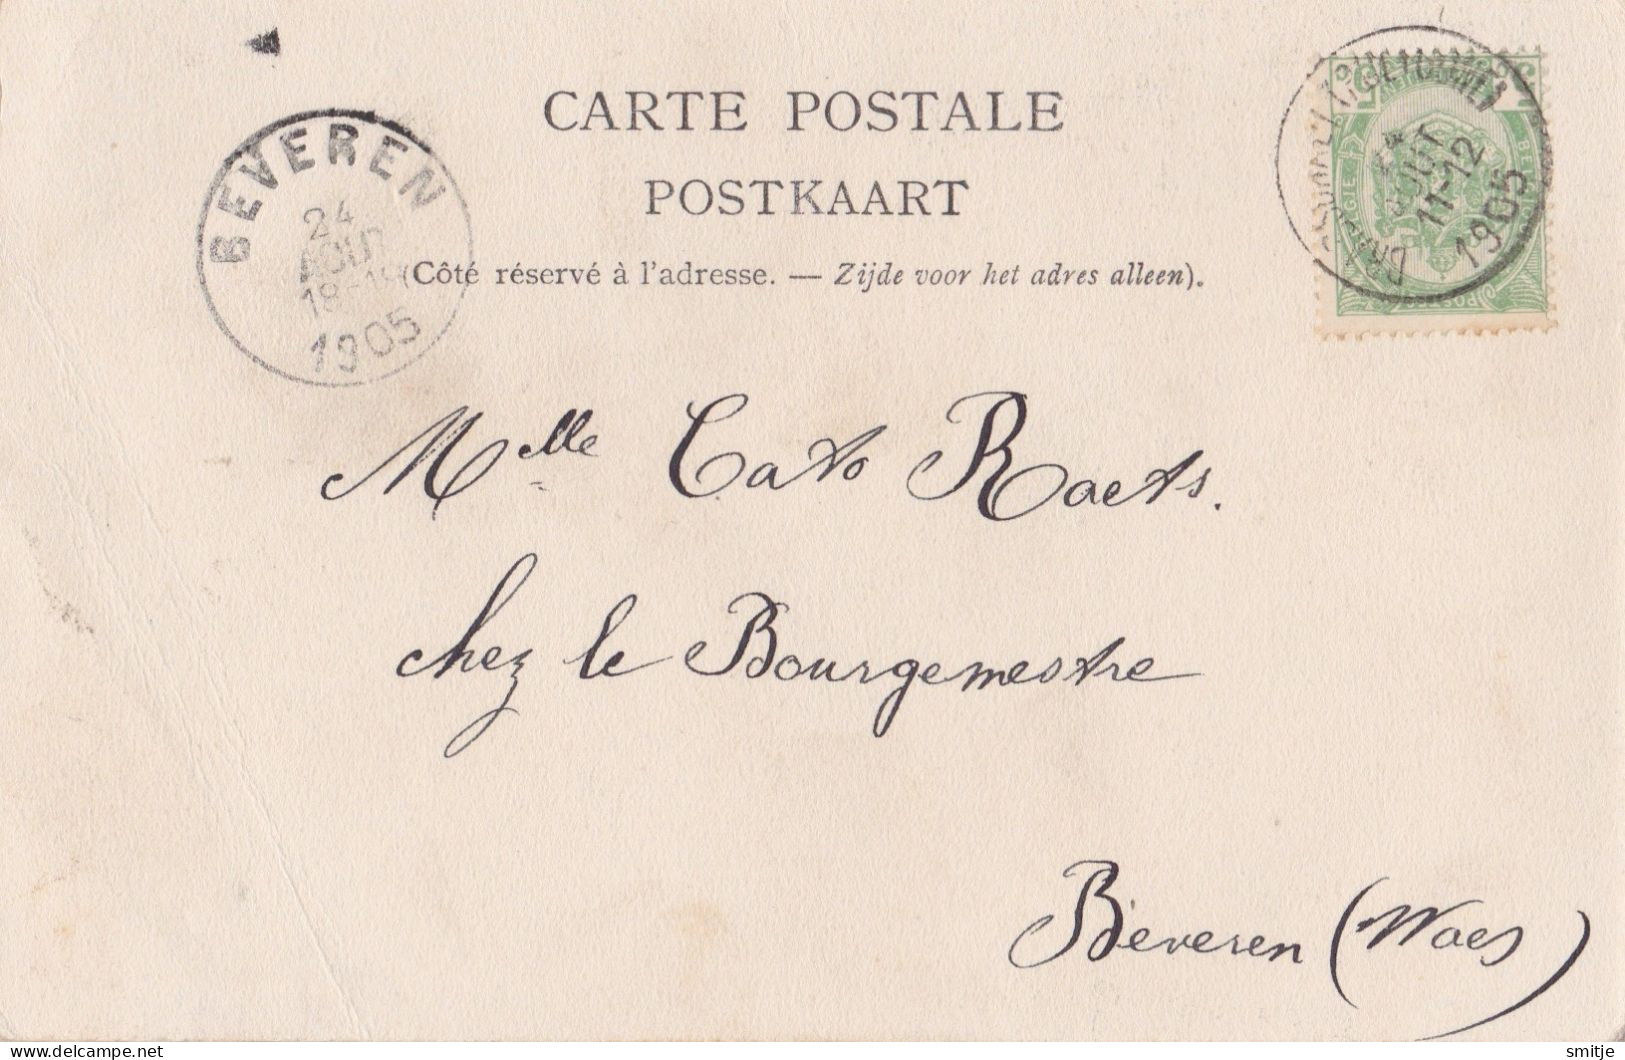 CARTE POSTALE
POSTKAART
(Côté réservé à l'adresse. — Zijde voor het adres alleen).
BEVEREN
24
AOUT
18-19
1905
AOUT
11-12
1905
Mlle Cato Raets.
chez le Bourgemestre
Beveren (Waes)
delcampe.net
smitje